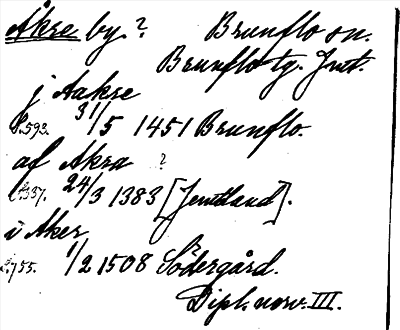 Åkre by.? Brunflo sn.
Brunflo tg. Jmt.
j Aakre
s.593. 31/5 1451 Brunflo.
af Akra ?
s.337. 24/3 1383 [Jemtland].
i Aker
s.755. 1/2 1508 Södergård.
Dipl. norv. III.